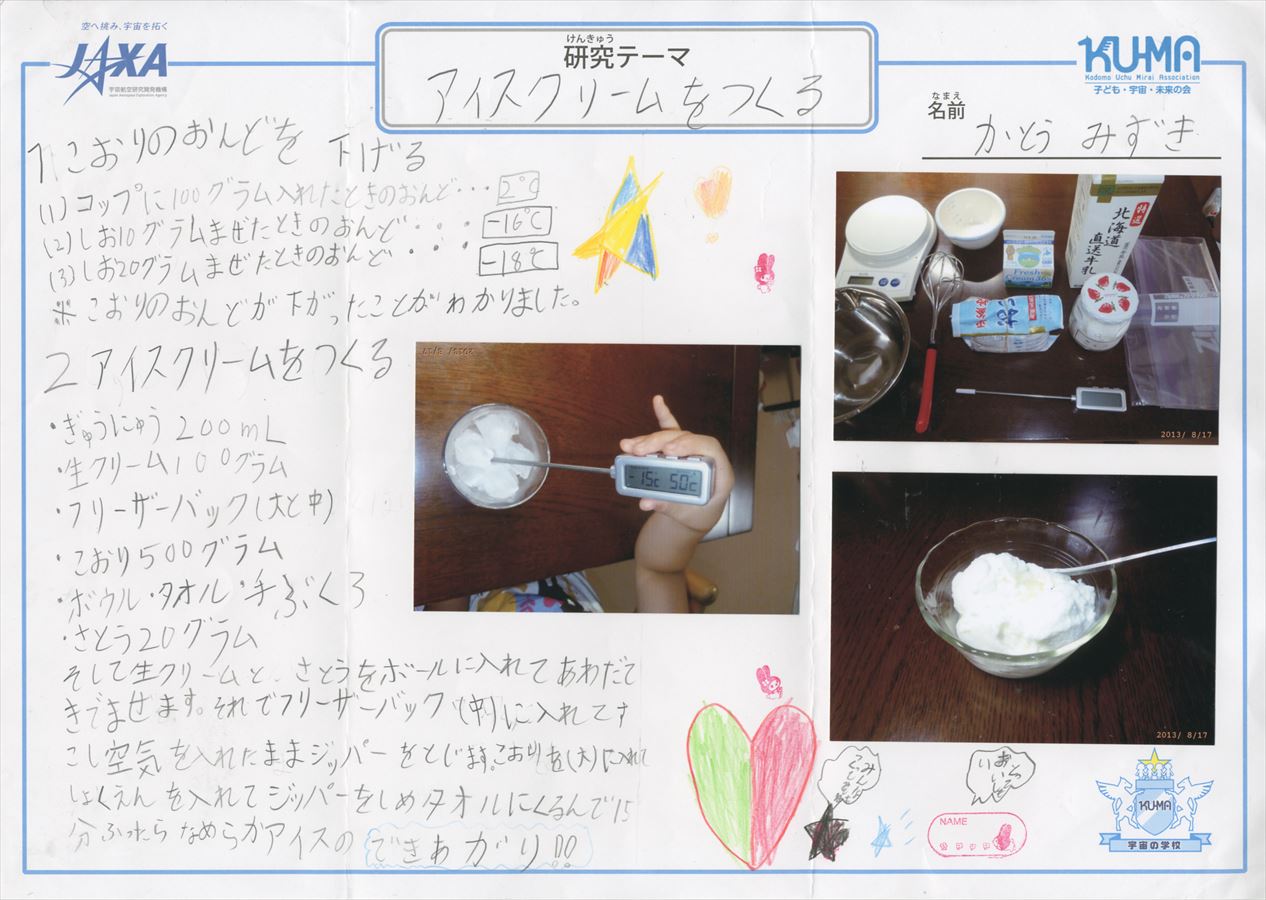 空へ挑み、宇宙を拓く
JAXA
宇宙航空研究開発機構
Japan Aerospace Exploration Agency
けんきゅう
研究テーマ
アイスクリームをつくる
KU-MA
Kodomo Uchu Mirai Association
子ども・宇宙・未来の会
なまえ
名前
かとう みずき
1.こおりのおんどを 下げる
(1)コップに100グラム入れたときのおんど・・・ 2℃
(2)しお10グラムまぜたときのおんど・・・・ -16℃
(3)しお20グラムまぜたときのおんど -18℃
※こおりのおんどが下がったことがわかりました。
2 アイスクリームをつくる
・ぎゅうにゅう 200mL
・生クリーム100グラム
・フリーザーバック(大と中)
・こおり500グラム
・ボウル・タオル・手ぶくろ
・さとう20グラム
そして生クリームと、さとうをボールに入れてあわだて
きでまぜます。それでフリーザーバック(中)に入れてす
こし空気を入れたままジッパーをとじます。こおりを(大)に入れて
しょくえんを入れてジッパーをしめタオルにくるんで15
分ふったらなめらかアイスの できあがり!!
特選
北海道
直送牛乳
Fresh
Cream 36
2013/ 8/17
-15℃ 50℃
2013/ 8/17
NAME
KU-MA
宇宙の学校